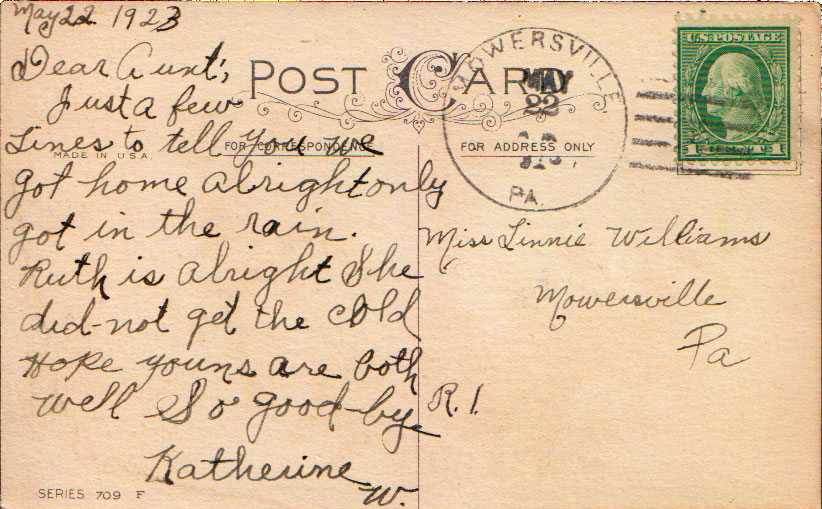 May 22 1923
Dear Aunt;,
Just a few
Lines to tell you we
got home alright only
got in the rain.
Ruth is alright She
did-not get the cold
Hope youns are both
well So good-by.
Katherine
W.
POST CARD
FOR CORRESPONDENCE
MADE IN U.S.A.
FOR ADDRESS ONLY
MOWERSVILLE
MAY
22
PA.
U.S. POSTAGE
Miss Linnie Williams
Mowersville
Pa
R. 1.
SERIES 709 F